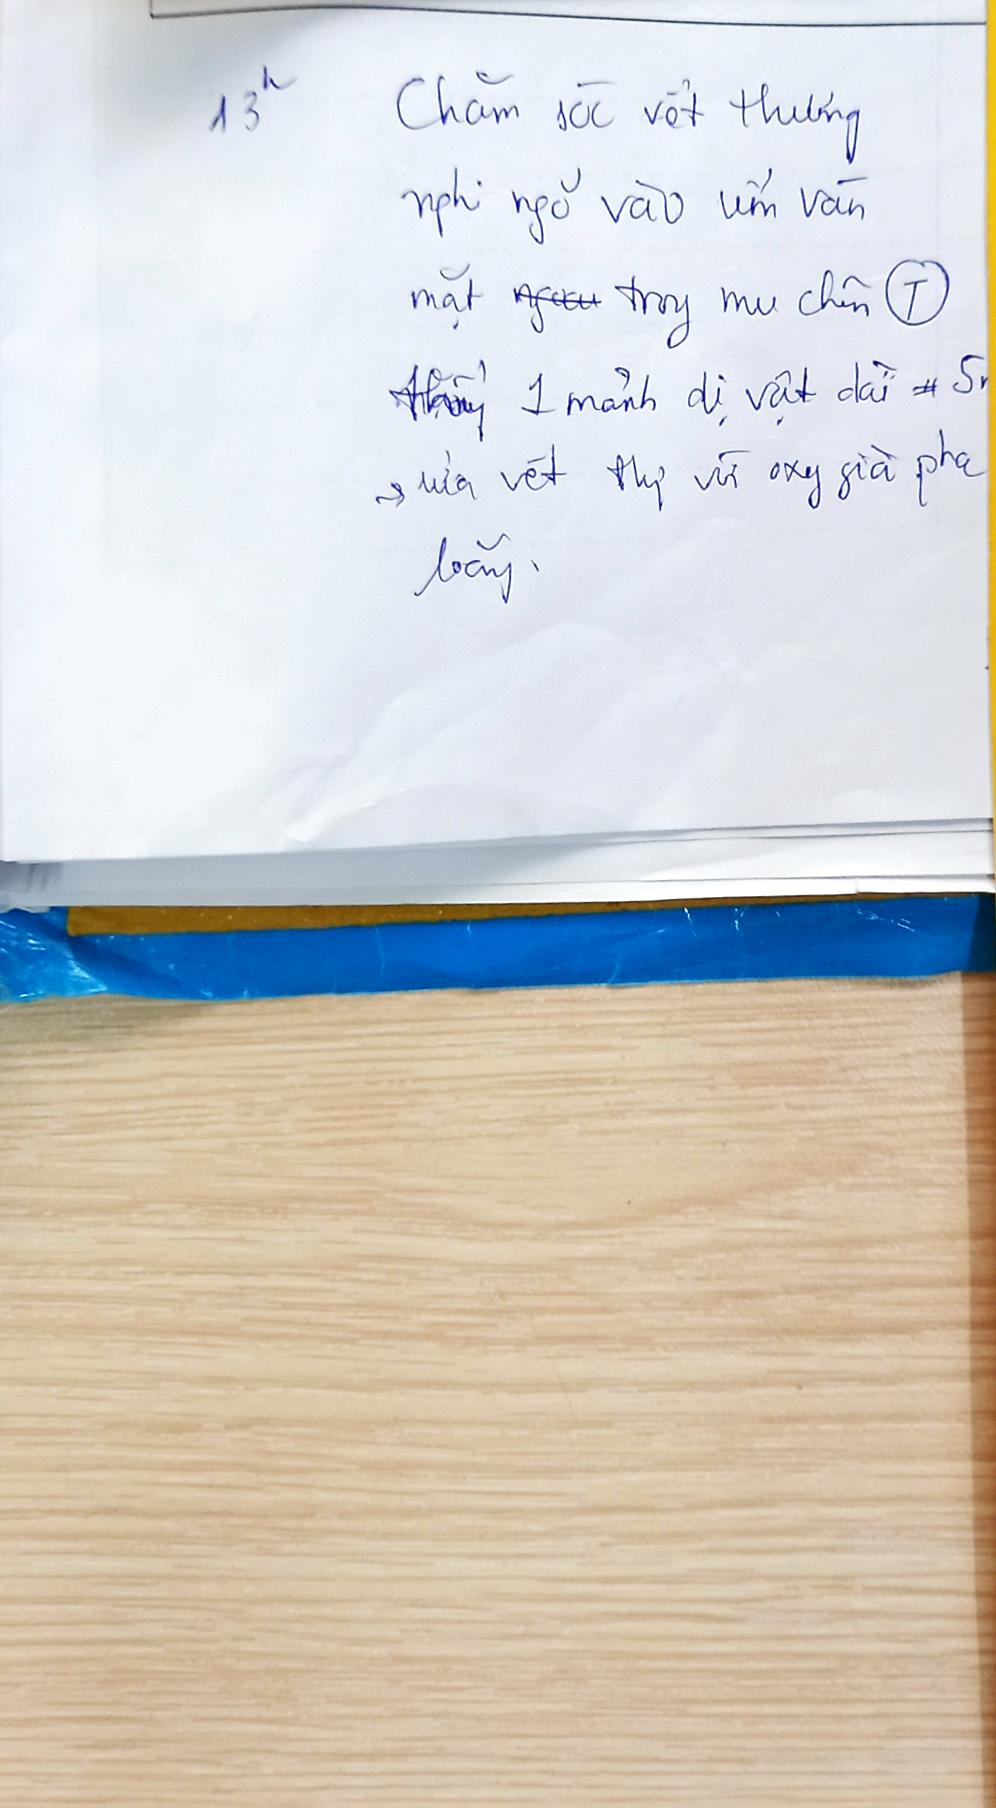 13h Chăm sóc vết thương
nghi ngờ vào uốn ván
mặt trong mu chân (T)
thấy 1 mảnh dị vật dài # 5
→ rửa vết thg với oxy già pha
loãng.